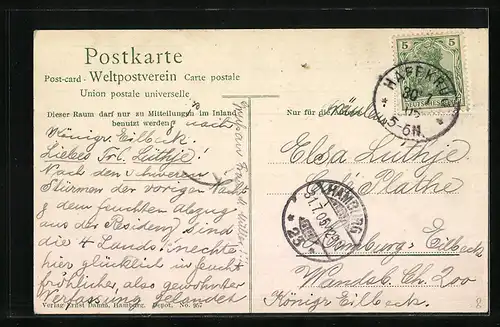 Postkarte
Post-card - Weltpostverein Carte postale
Union postale universelle
Dieser Raum darf nur zu Mitteilungen im Inland
benutzt werden
nach
Königr. Eilbeck.
Liebes Frl. Lüthje!
Nach den schweren
Stürmen der vorigen
dem feuchten Abzug
aus der Residenz sind
die 4 Landsknechte
hier glücklich in feucht
fröhlicher, also gewohnter
Verfassung gelandet
Verlag Ernst Dahms, Hamburg. Depot. No. 957
Nur für die
5
DEUTSCHES REICH
HASEKRUG
30
5-6N.
Elsa Lüthje
Plathe
HAMBURG
31.7.06
* 23 *
Hamburg-Eilbeck
Wandsb. Ch. 200
Königr Eilbeck.